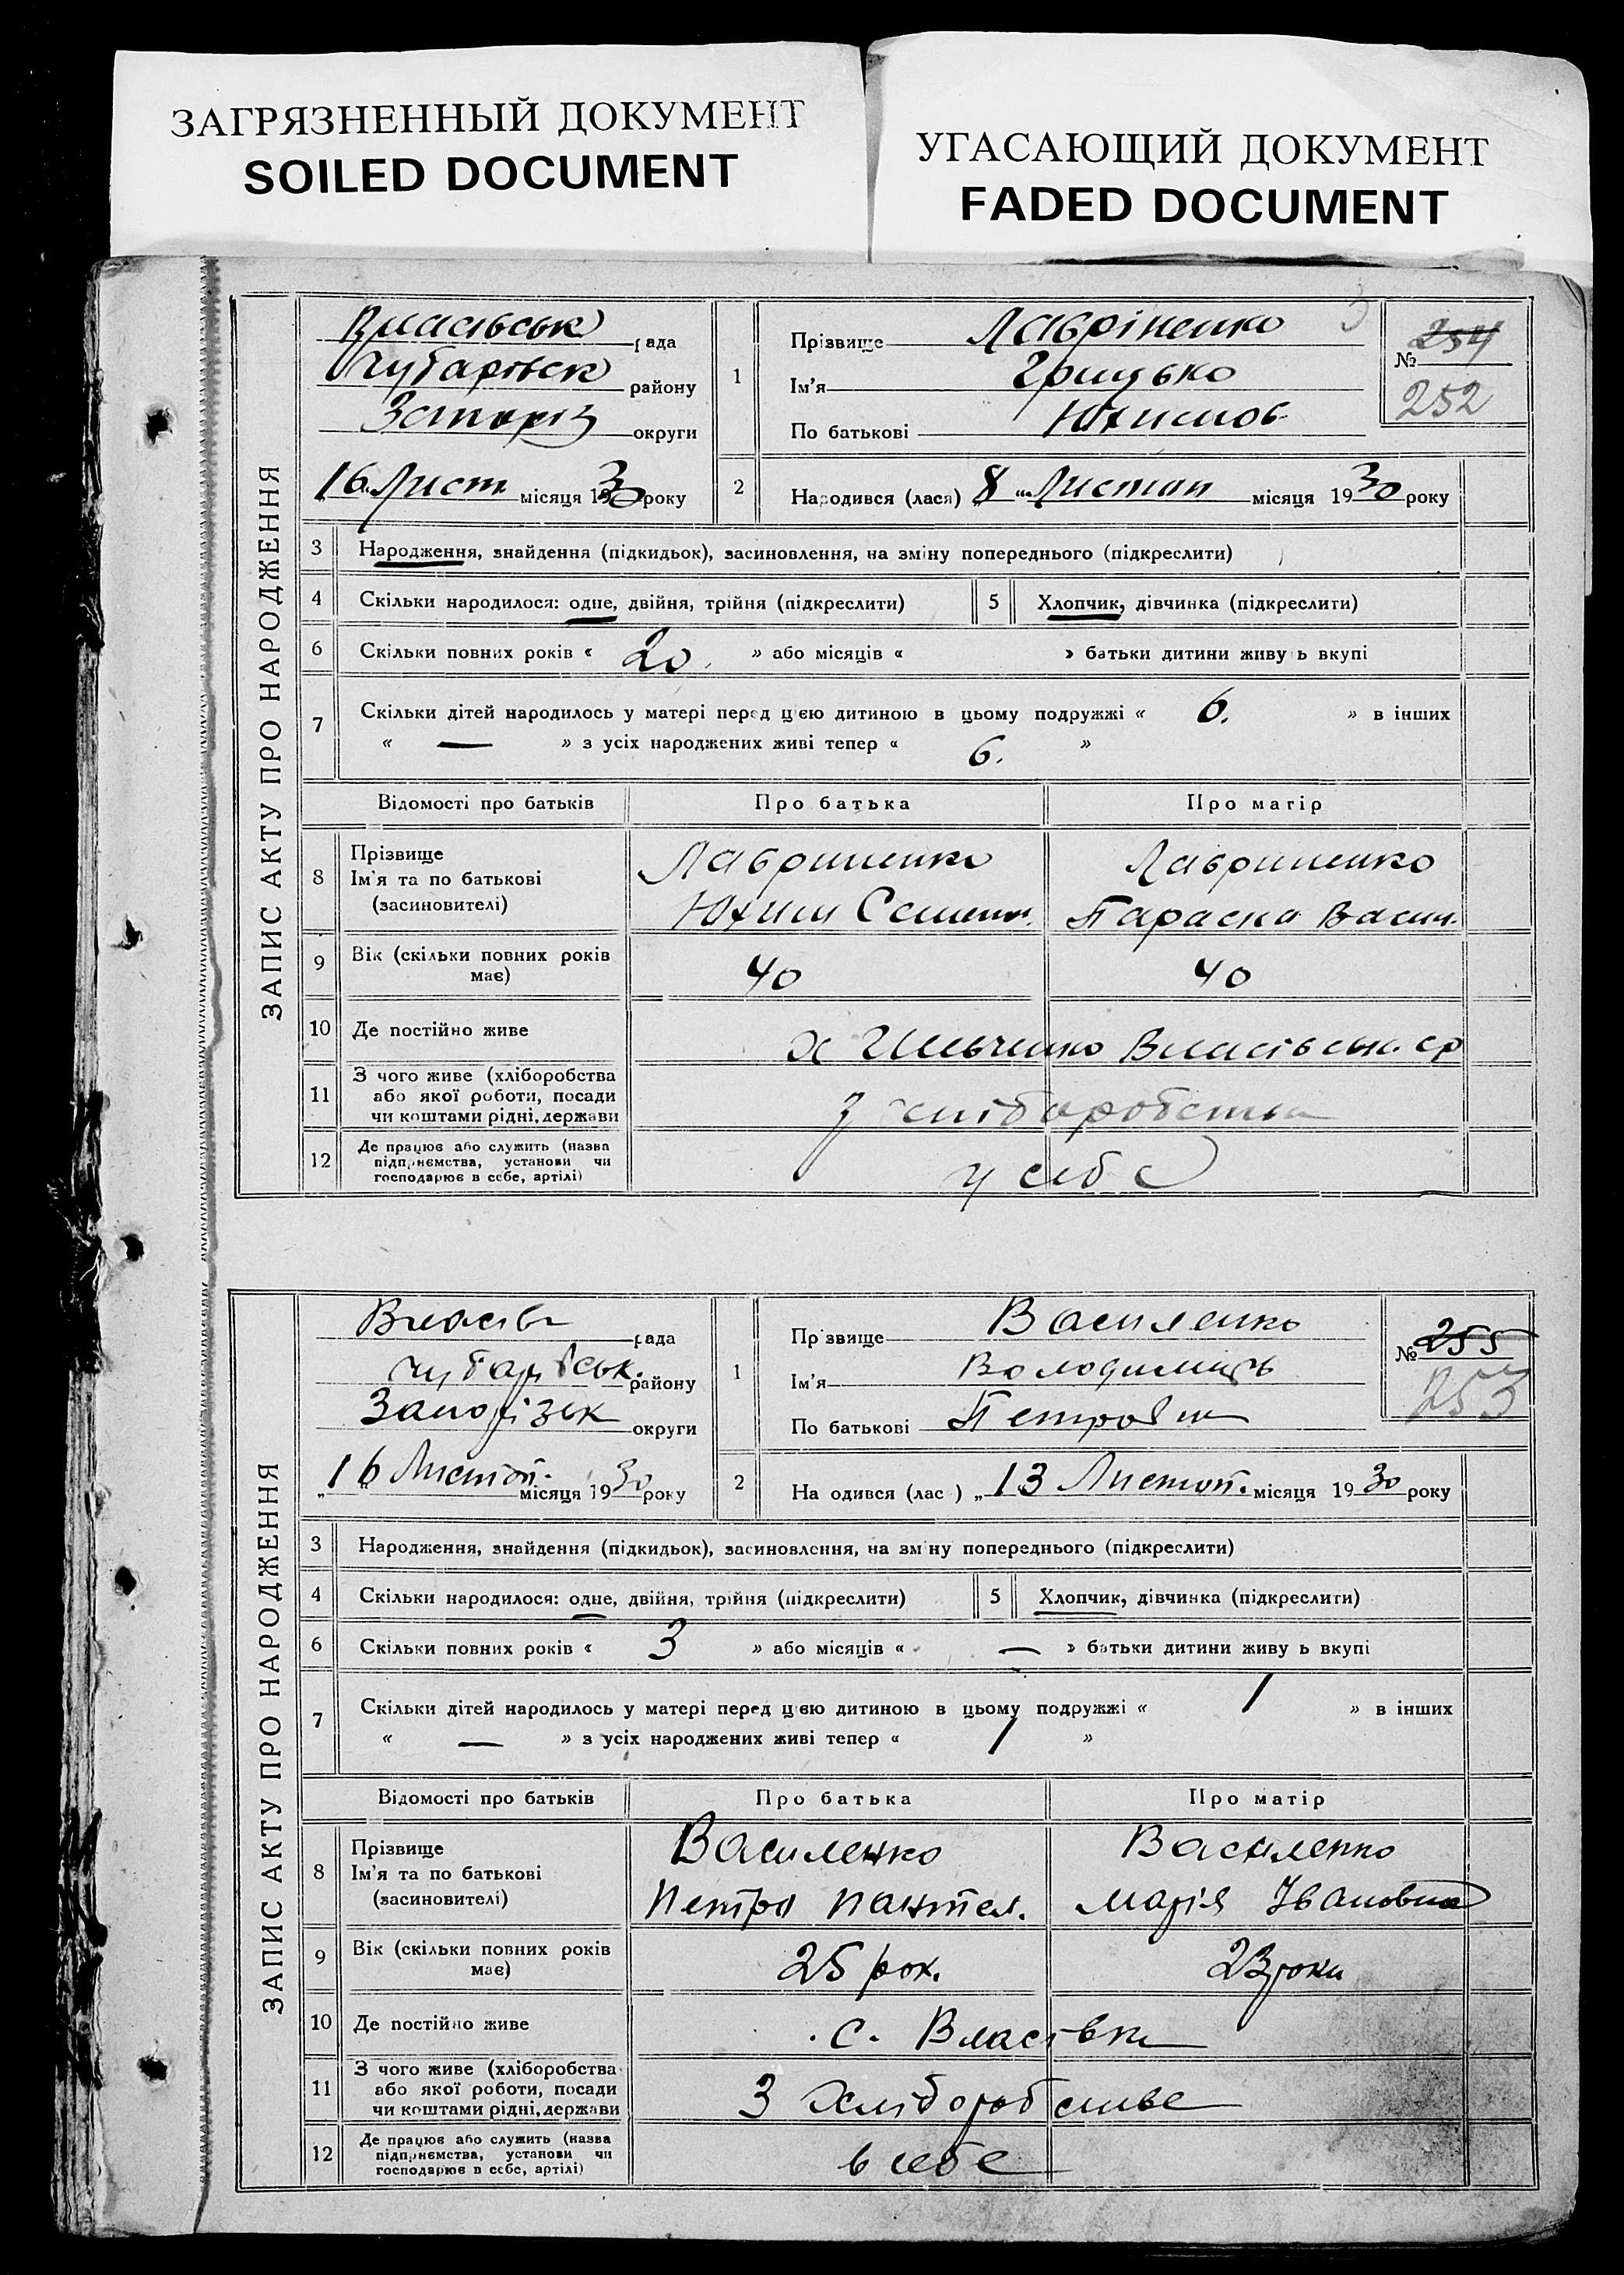 ЗАГРЯЗНЕННЫЙ ДОКУМЕНТ
SOILED DOCUMENT
УГАСАЮЩИЙ ДОКУМЕНТ
FADED DOCUMENT
ЗАПИС АКТУ ПРО НАРОДЖЕННЯ
Власівськ рада
Чубарівск району
Запоріз округи
16 Лист місяця 1930 року
1
Прізвище Лавріненко
Ім'я Грицько
По батькові Юхимов
№ 254
252
2
Народився (лася) „8" Листоп місяця 1930 року
3 Народження, знайдення (підкидьок), засиновлення, на зміну попереднього (підкреслити)
4 Скільки народилося: одне, двійня, трійня (підкреслити) 5 Хлопчик, дівчинка (підкреслити)
6 Скільки повних років « 20. » або місяців « » батьки дитини живу ь вкупі
7 Скільки дітей народилось у матері перед цією дитиною в цьому подружжі « 6. » в інших
« — » з усіх народжених живі тепер « 6. »
Відомості про батьків Про батька Про матір
8 Прізвище Ім'я та по батькові (засиновителі)
Лавриненко Лавриненко
Юхим Семен. Параска Васил.
9 Вік (скільки повних років має) 40 40
10 Де постійно живе х Шевченко Власівськ. ср
11 З чого живе (хліборобства або якої роботи, посади чи коштами рідні, держави з хліборобства
12 Де працює або служить (назва підприємства, установи чи господарює в себе, артілі) у себе
ЗАПИС АКТУ ПРО НАРОДЖЕННЯ
Власів рада
Чубарівськ. району
Запорізьк округи
„16" Листоп. місяця 1930 року
1
Пр звище Василенко
Ім'я Володимирь
По батькові Петрович
№ 255
253
2
На одився (лас ) „13 Листоп. місяця 1930 року
3 Народження, знайдення (підкидьок), засиновлення, на зм ну попереднього (підкреслити)
4 Скільки народилося: одне, двійня, трійня (підкреслити) 5 Хлопчик, дівчинка (підкреслити)
6 Скільки повних років « 3 » або місяців « — » батьки дитини живу ь вкупі
7 Скільки дітей народилось у матері перед цією дитиною в цьому подружжі « 1 » в інших
« — » з усіх народжених живі тепер « 1 »
Відомості про батьків Про батька Про матір
8 Прізвище Ім'я та по батькові (засиновителі)
Василенко Василенко
Петро Пантел. Марія Івановна
9 Вік (скільки повних років має) 25 рок. 23 роки
10 Де постійно живе с. Власівка
11 З чого живе (хліборобства або якої роботи, посади чи коштами рідні, держави З хліборобстве
12 Де працює або служить (назва підприємства, установи чи господарює в себе, артілі) в себе